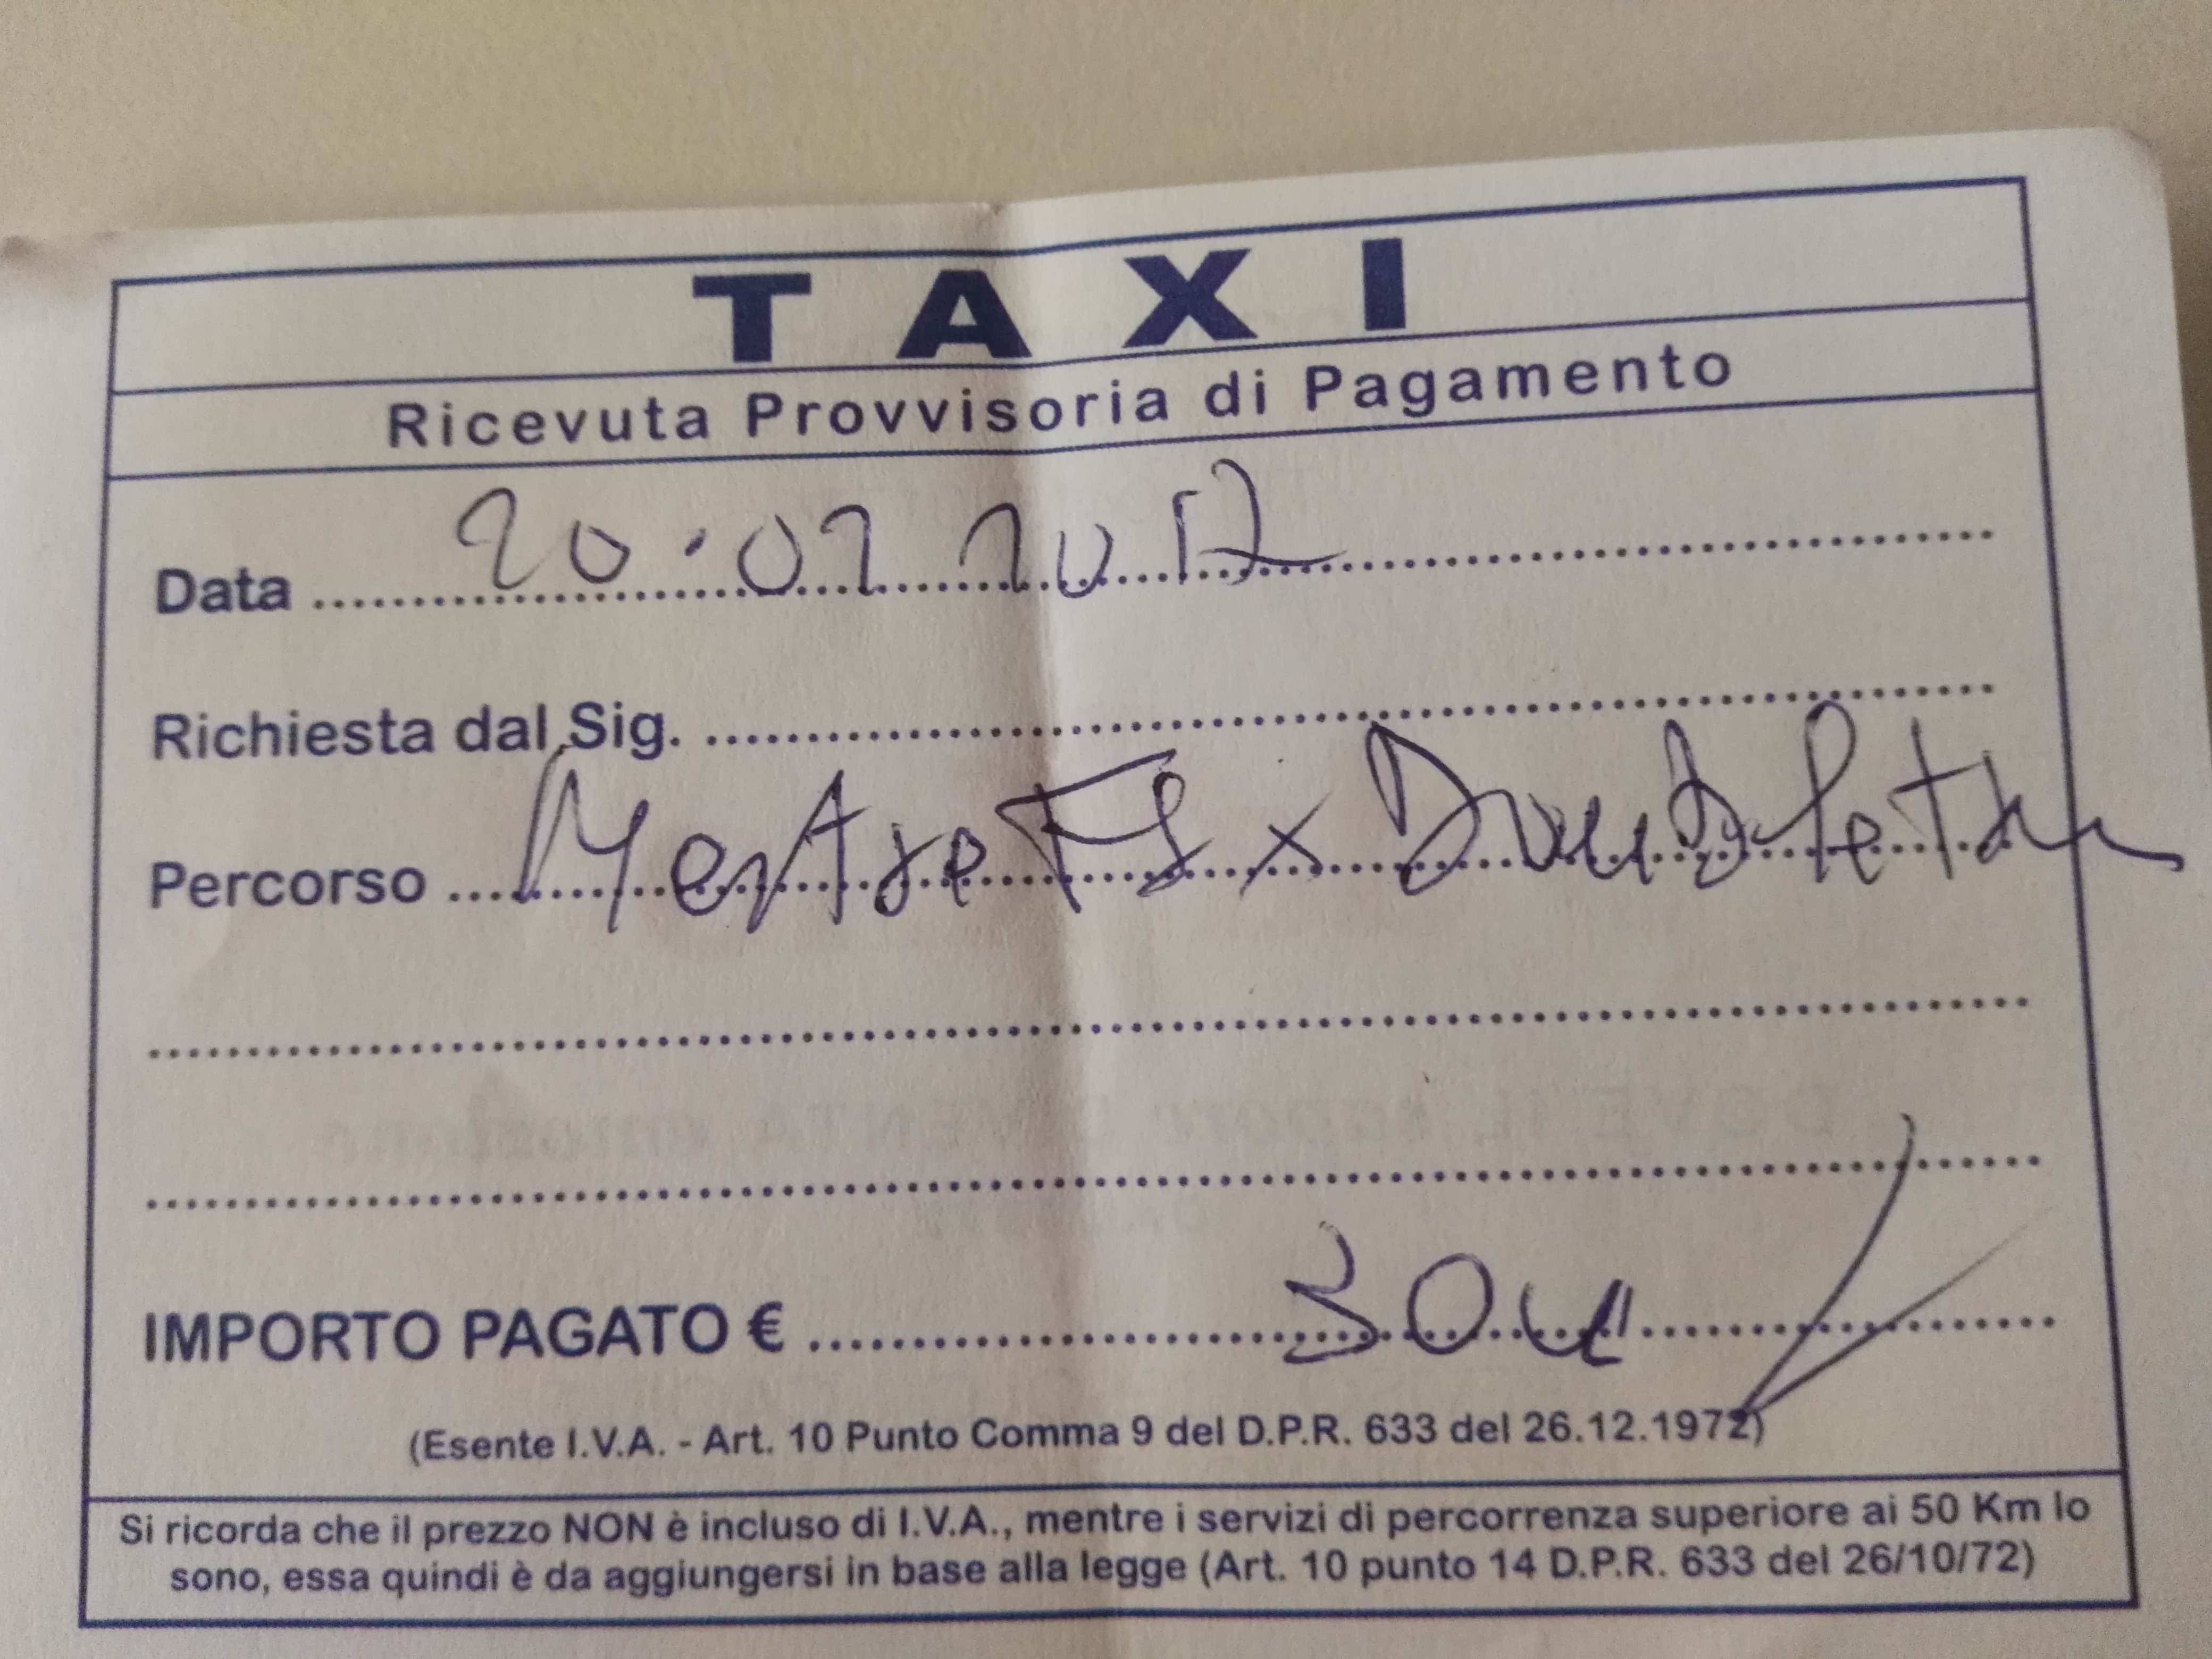 TAXI
Ricevuta Provvisoria di Pagamento
Data 20.07 2017
Richiesta dal Sig.
Percorso Mestre FS x
IMPORTO PAGATO € 30
(Esente I.V.A. - Art. 10 Punto Comma 9 del D.P.R. 633 del 26.12.1972)
Si ricorda che il prezzo NON è incluso di I.V.A., mentre i servizi di percorrenza superiore ai 50 Km lo
sono, essa quindi è da aggiungersi in base alla legge (Art. 10 punto 14 D.P.R. 633 del 26/10/72)